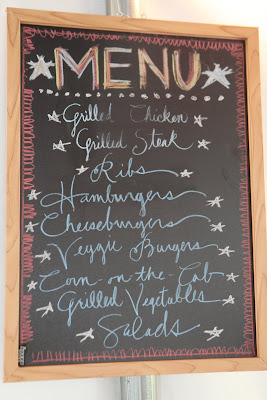 MENU
Grilled Chicken
Grilled Steak
Ribs
Hamburgers
Cheeseburgers
Veggie Burgers
Corn-on-the-Cob
Grilled Vegetables
Salads